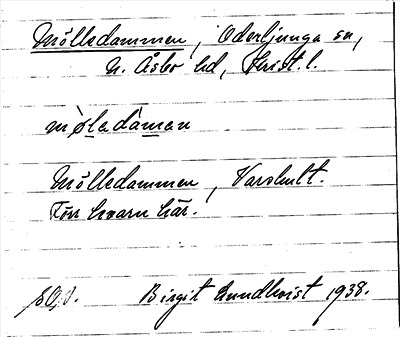 Mölledammen, Oderljunga sn,
N. Åsbo hd, Krist. l.
møladamen
Mölledammen, Varshult.
Förr kvarn här.
Birgit Lundkvist 1938.